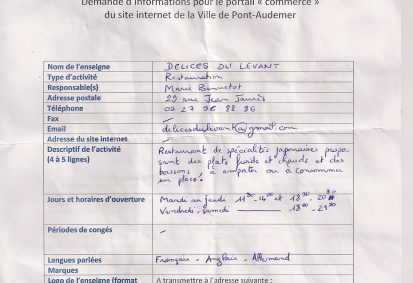 Demande d'informations pour le portail « commerce »
du site internet de la Ville de Pont-Audemer
Nom de l'enseigne DELICES DU LEVANT
Type d'activité Restauration
Responsable(s) Marie Bonnetot
Adresse postale 29 rue Jean Jaurès
Téléphone 02 27 36 88 86
Fax –
Email delicesdulevant@gmail.com
Adresse du site internet –
Descriptif de l'activité Restaurant de spécialités japonaises propo
(4 à 5 lignes) sant des plats froids et chauds et des
boissons, à emporter ou à consommer
sur place.
Jours et horaires d'ouverture Mardi au jeudi 11h30 - 14h00 et 18h30 - 20h30
Vendredi - samedi 18h00 - 21h30
Périodes de congés –
Langues parlées Français - Anglais - Allemand
Marques
Logo de l'enseigne (format A transmettre à l'adresse suivante :